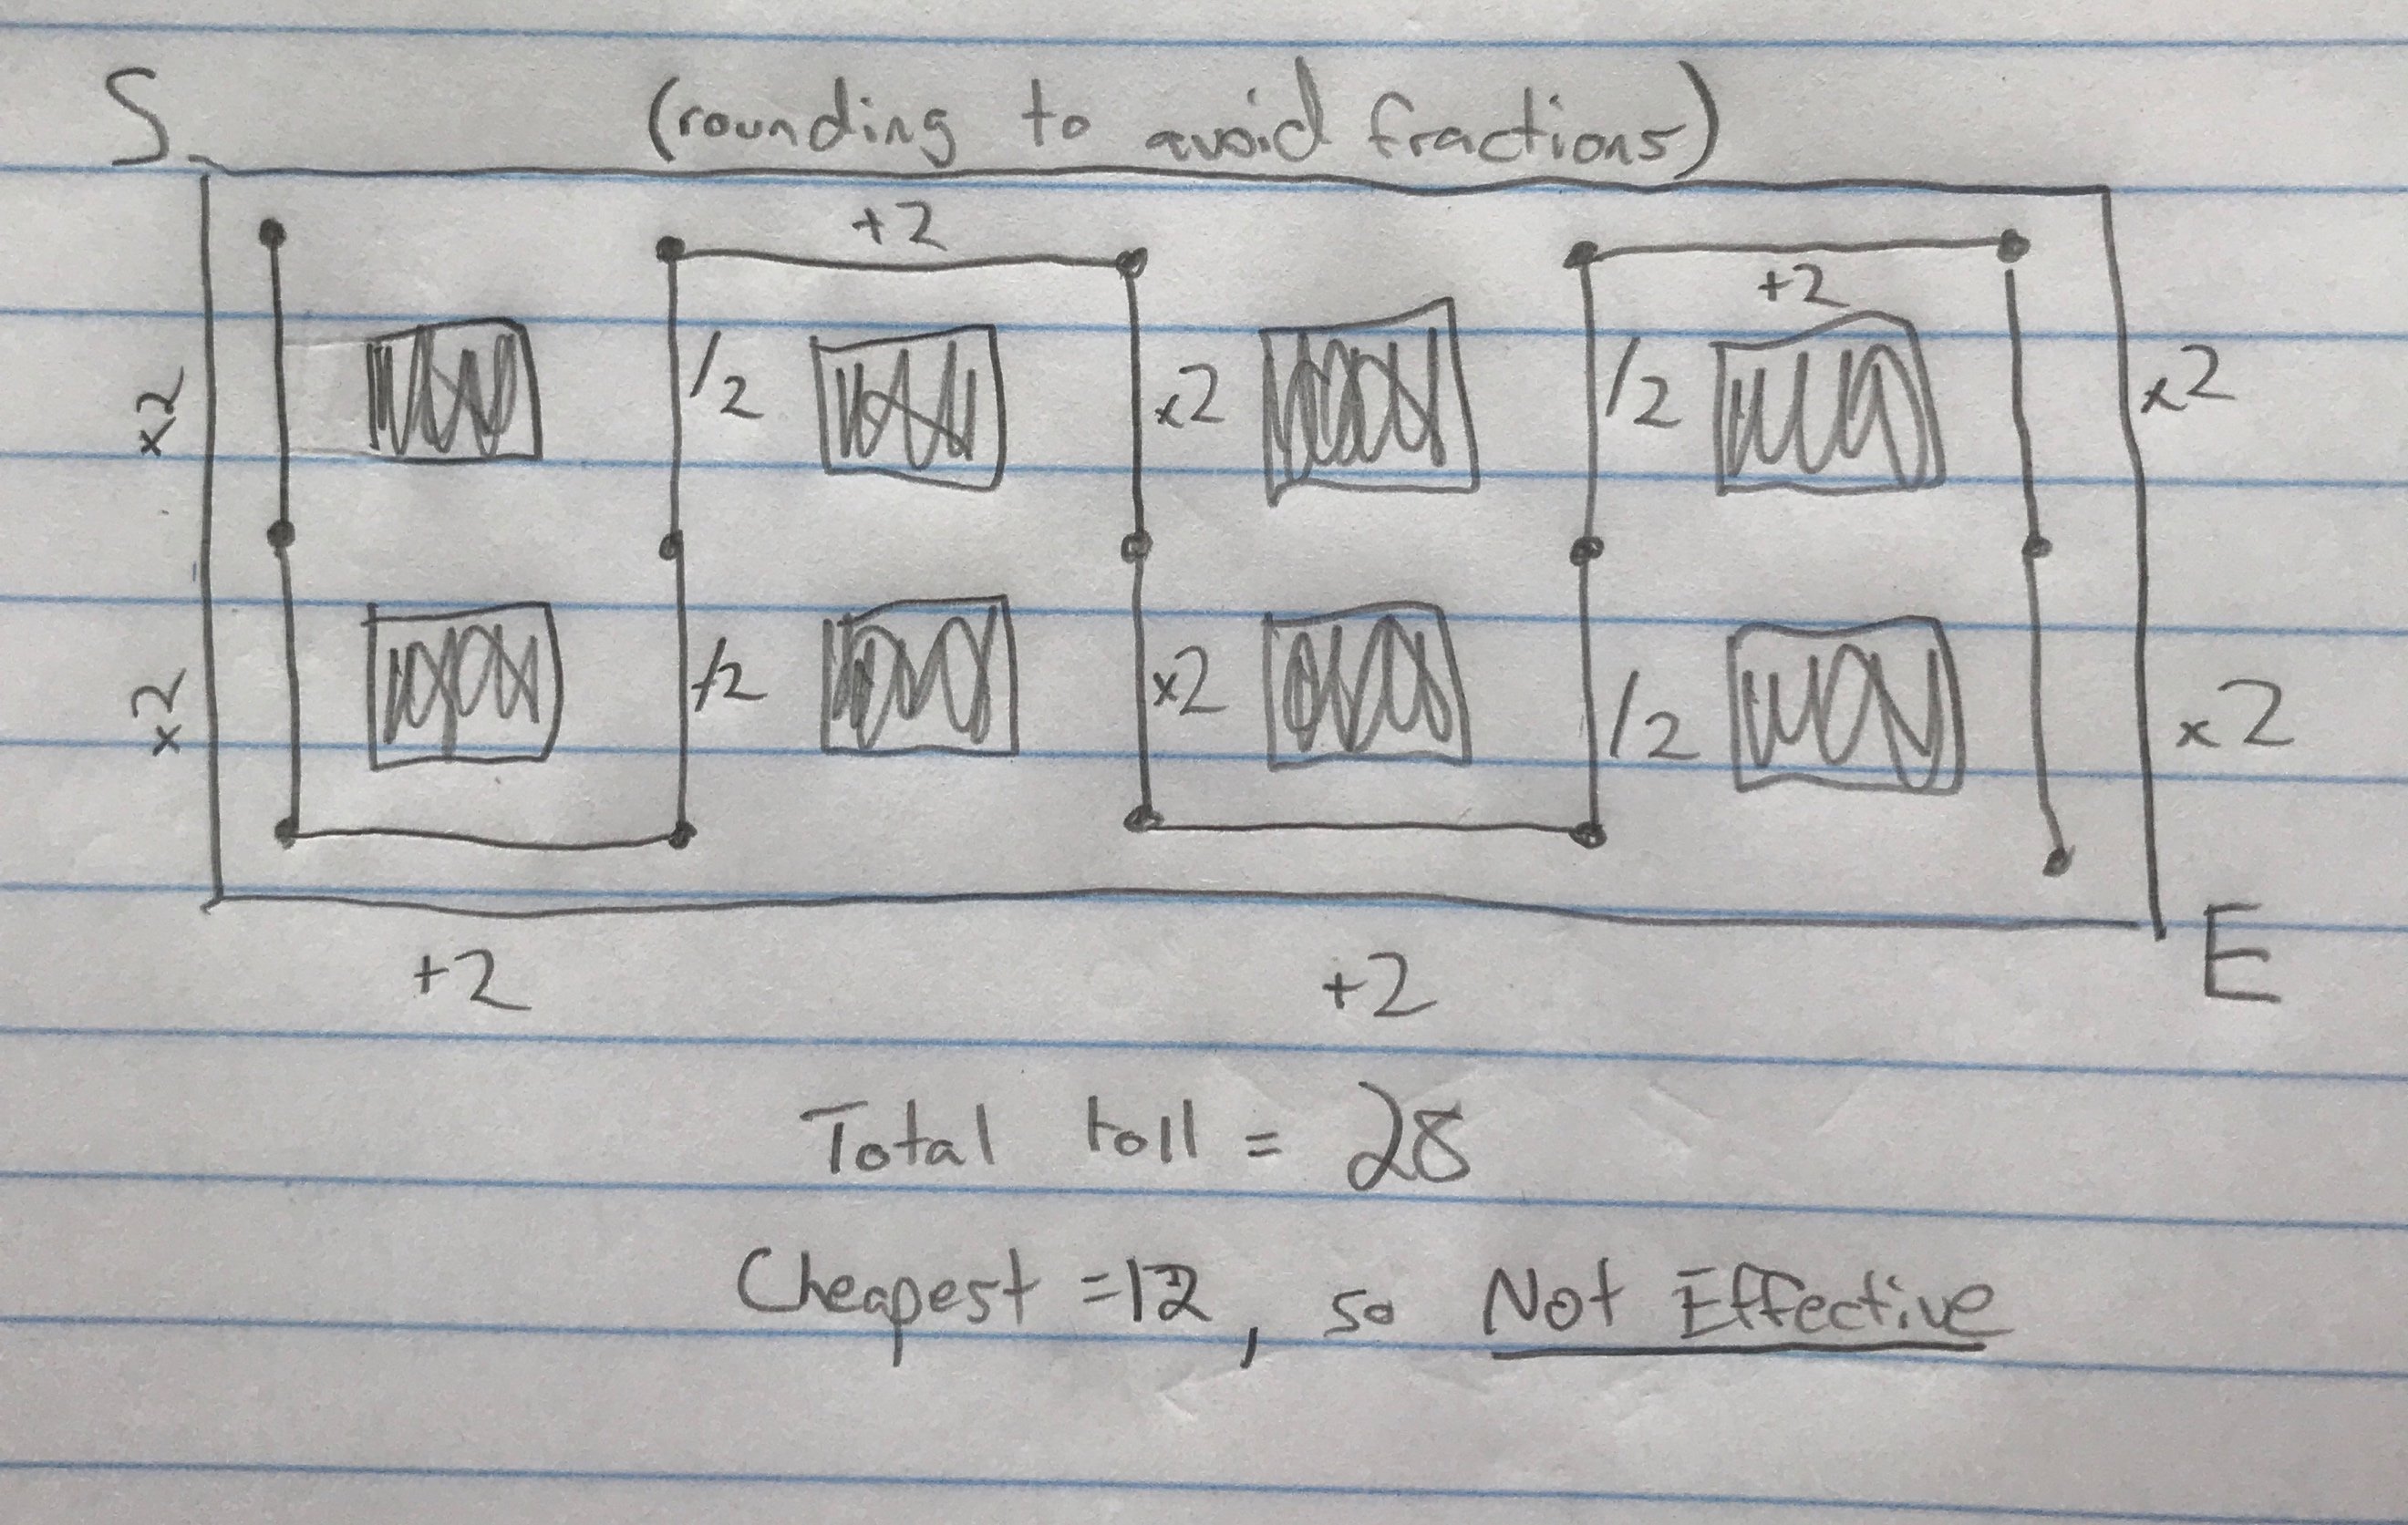 S (rounding to avoid fractions)
+2
+2
x2 /2 x2 /2 x2
x2 /2 x2 /2 x2
+2 +2 E
Total toll = 28
Cheapest = 12, so Not Effective